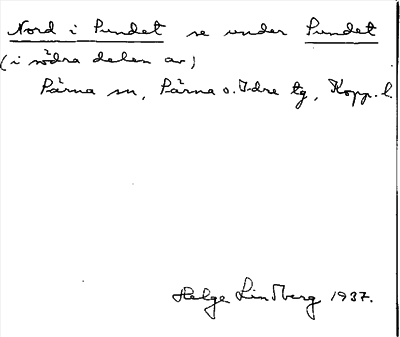 Nord i Sundet se under Sundet
(i södra delen av)
Särna sn, Särna o. Idre tg, Kopp. l.
Helge Lindberg 1937.